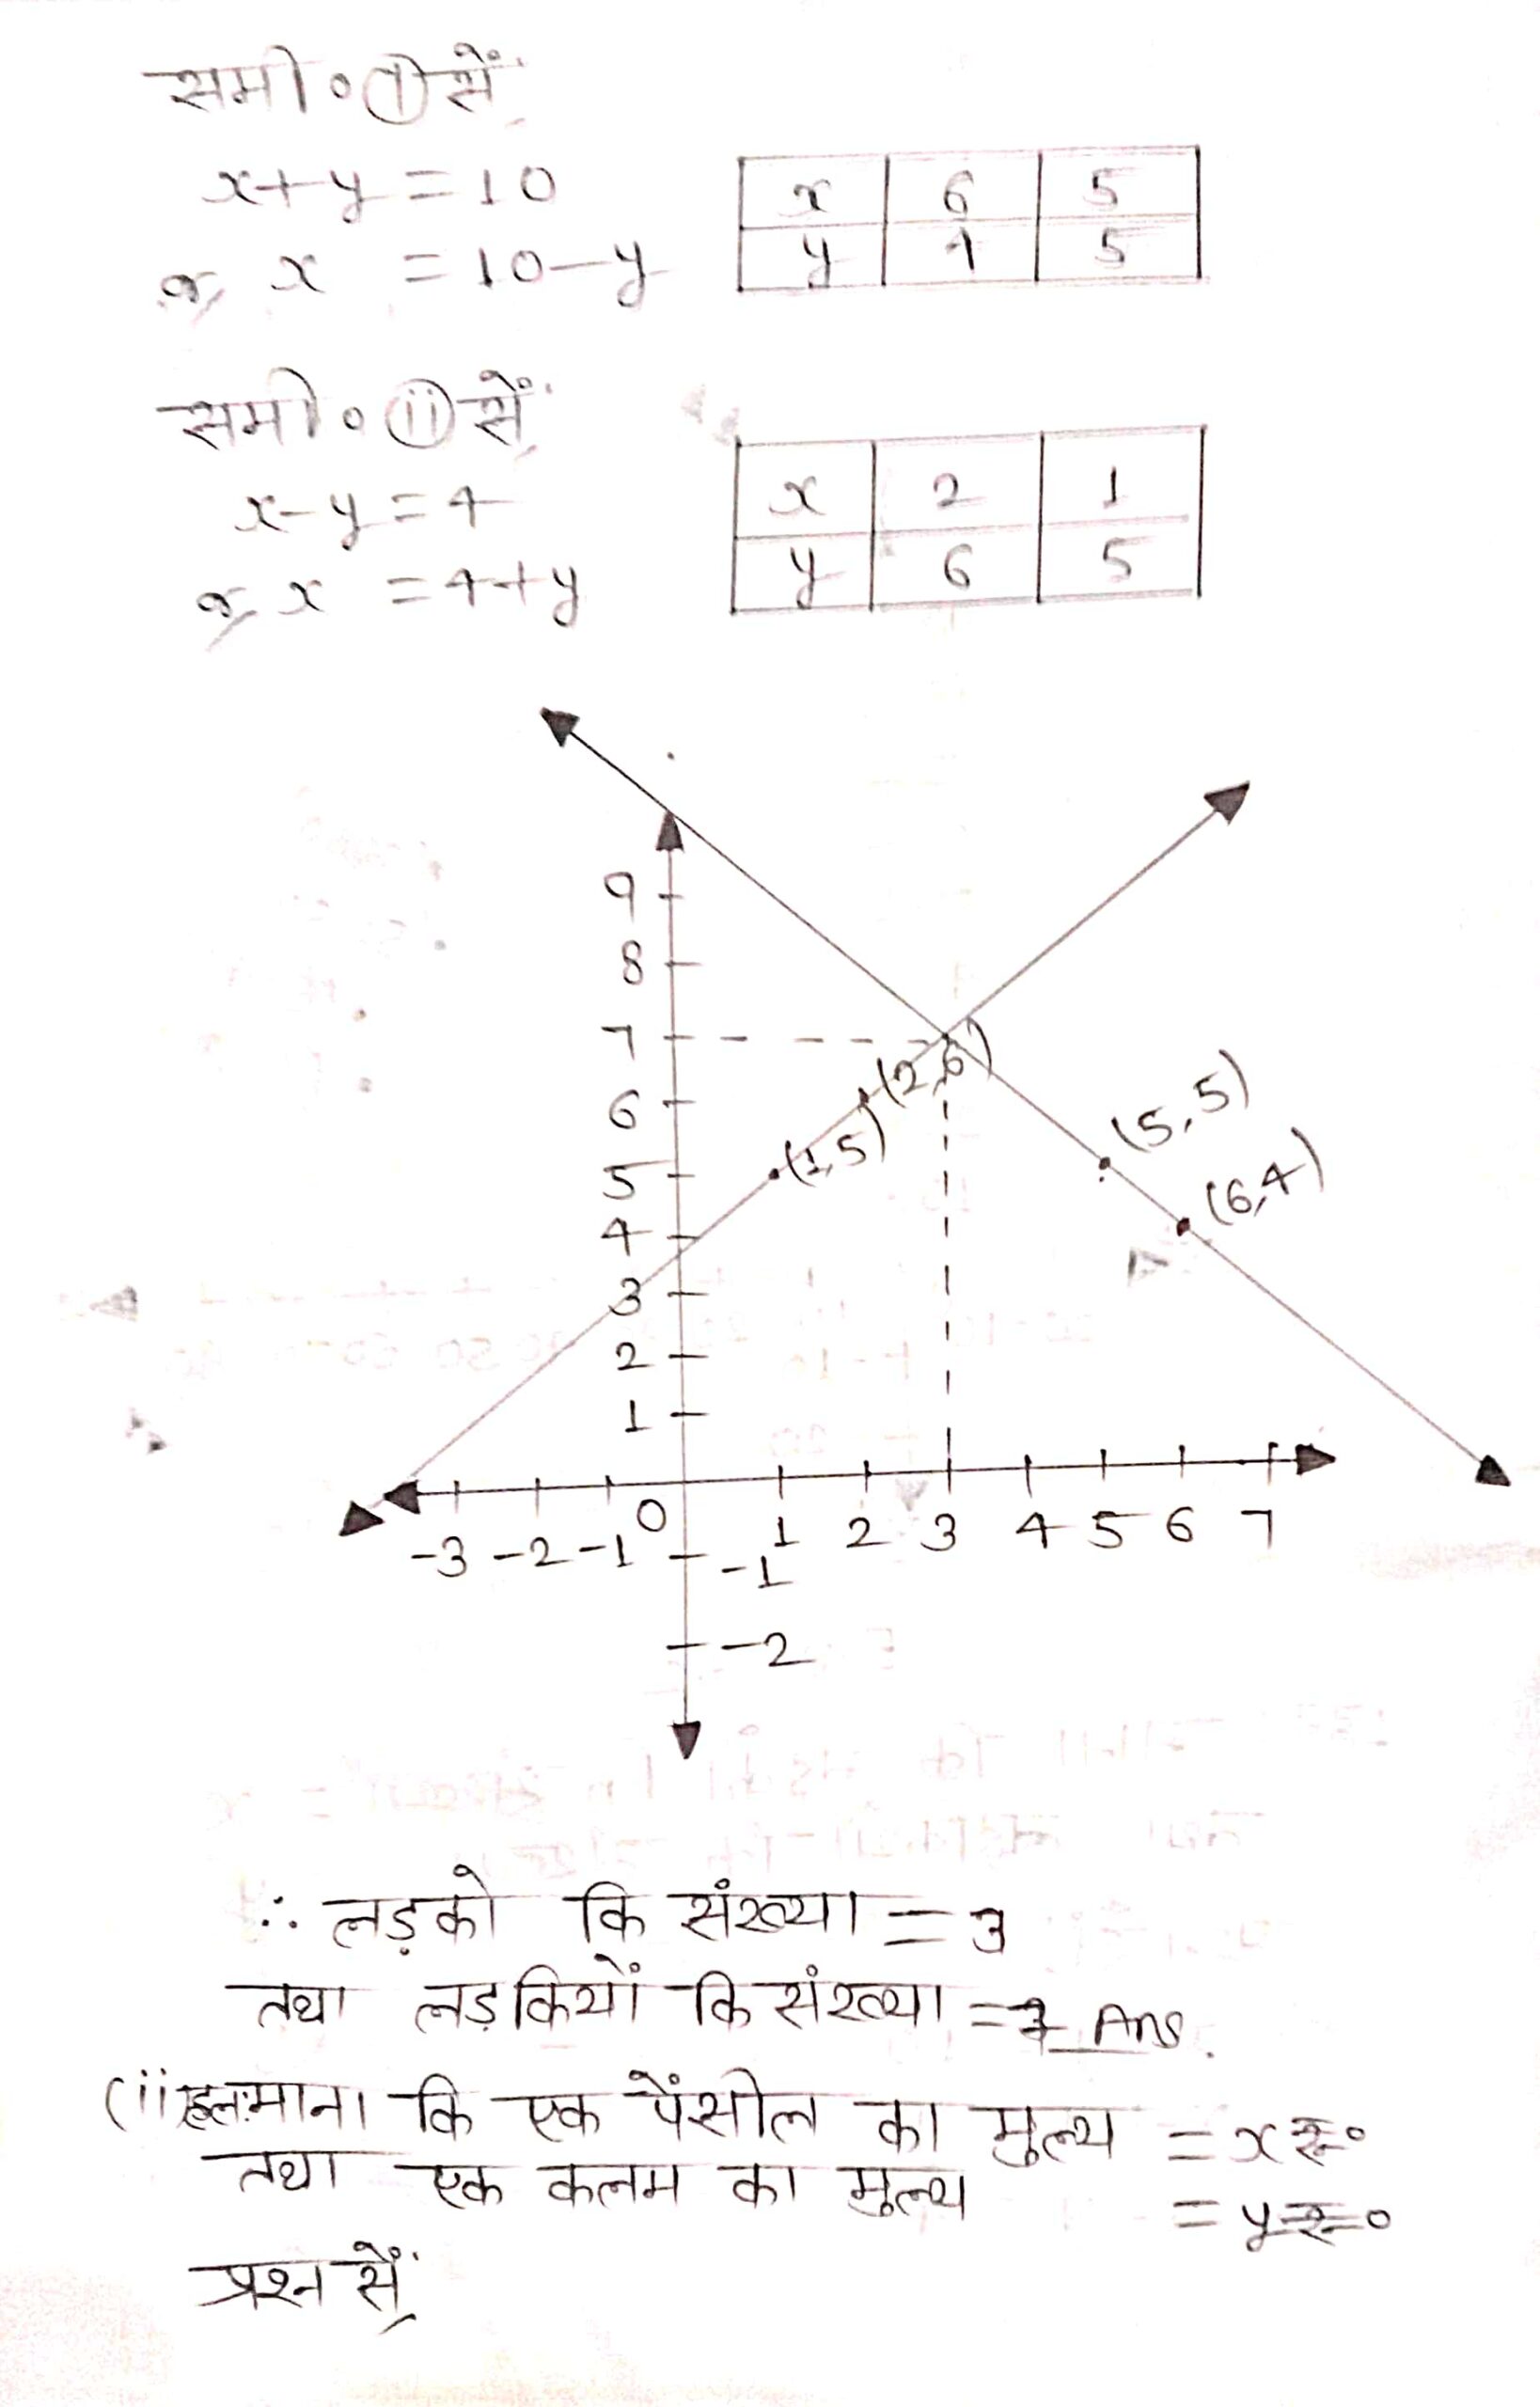 समी० (i) से,
x+y = 10
x 6 5
y 4 5
या, x = 10-y
समी० (ii) सें,
x-y = 4
या, x = 4+y
x 2 1
y 6 5
9
8
7
6
5
4
3
2
1
(2,6)
(1,5)
(5,5)
(6,4)
-3 -2 -1 0 1 2 3 4 5 6 7
-1
-2
∴ लड़को कि संख्या = 3
तथा लड़कियों कि संख्या = 7 Ans.
(ii) हल:माना कि एक पेंसील का मुल्य = x रु०
तथा एक कलम का मुल्य = y रु०
प्रश्न सें,